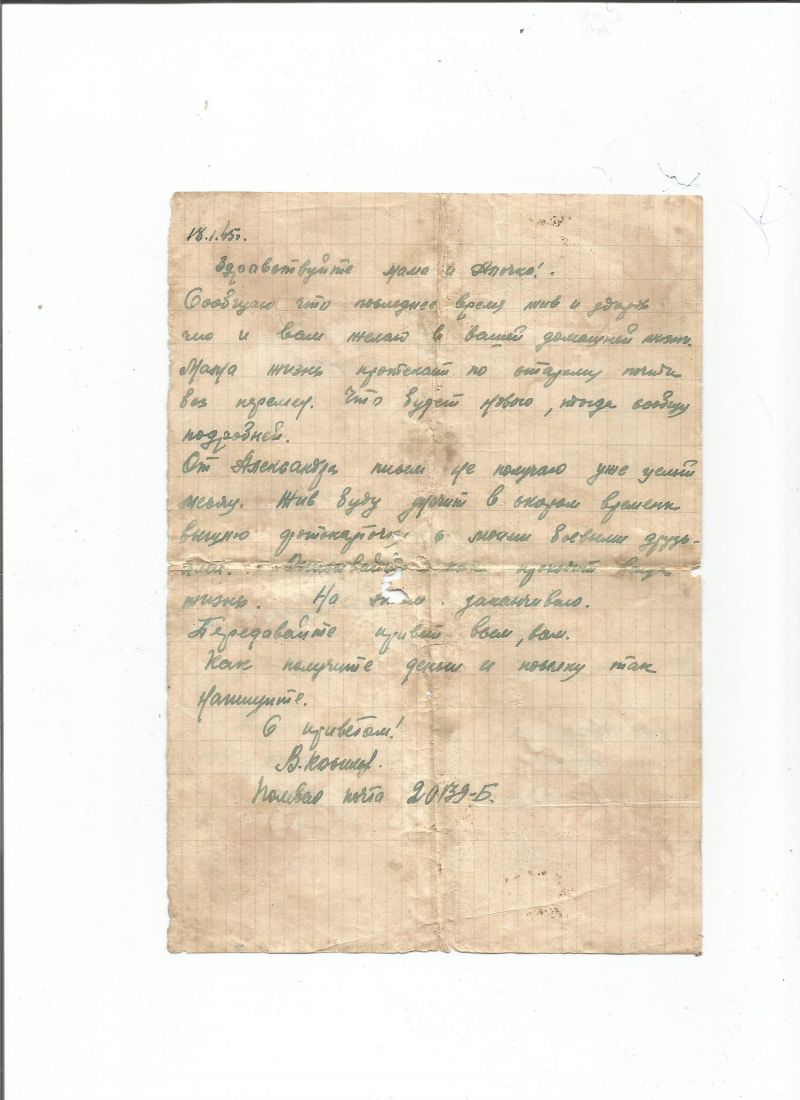 18.1.45г.
Здравствуйте мама и Алочка!
Сообщаю что последнее время жив и здоров
чего и вам желаю в вашей домашней жизни.
Мама жизнь протекает по старому почти
без перемен. Что будет нового, тогда сообщу
подробней.
От Александра писем не получаю уже целый
месяц. Жив буду значит в скором времени
вышлю фотокарточку с моими боевыми друзь-
ями. как проходит ваша
жизнь. На этом заканчиваю.
Передавайте привет всем, вам.
Как получите деньги и посылку так
напишите.
С приветом!
В.
Полевая почта 20139-Б.